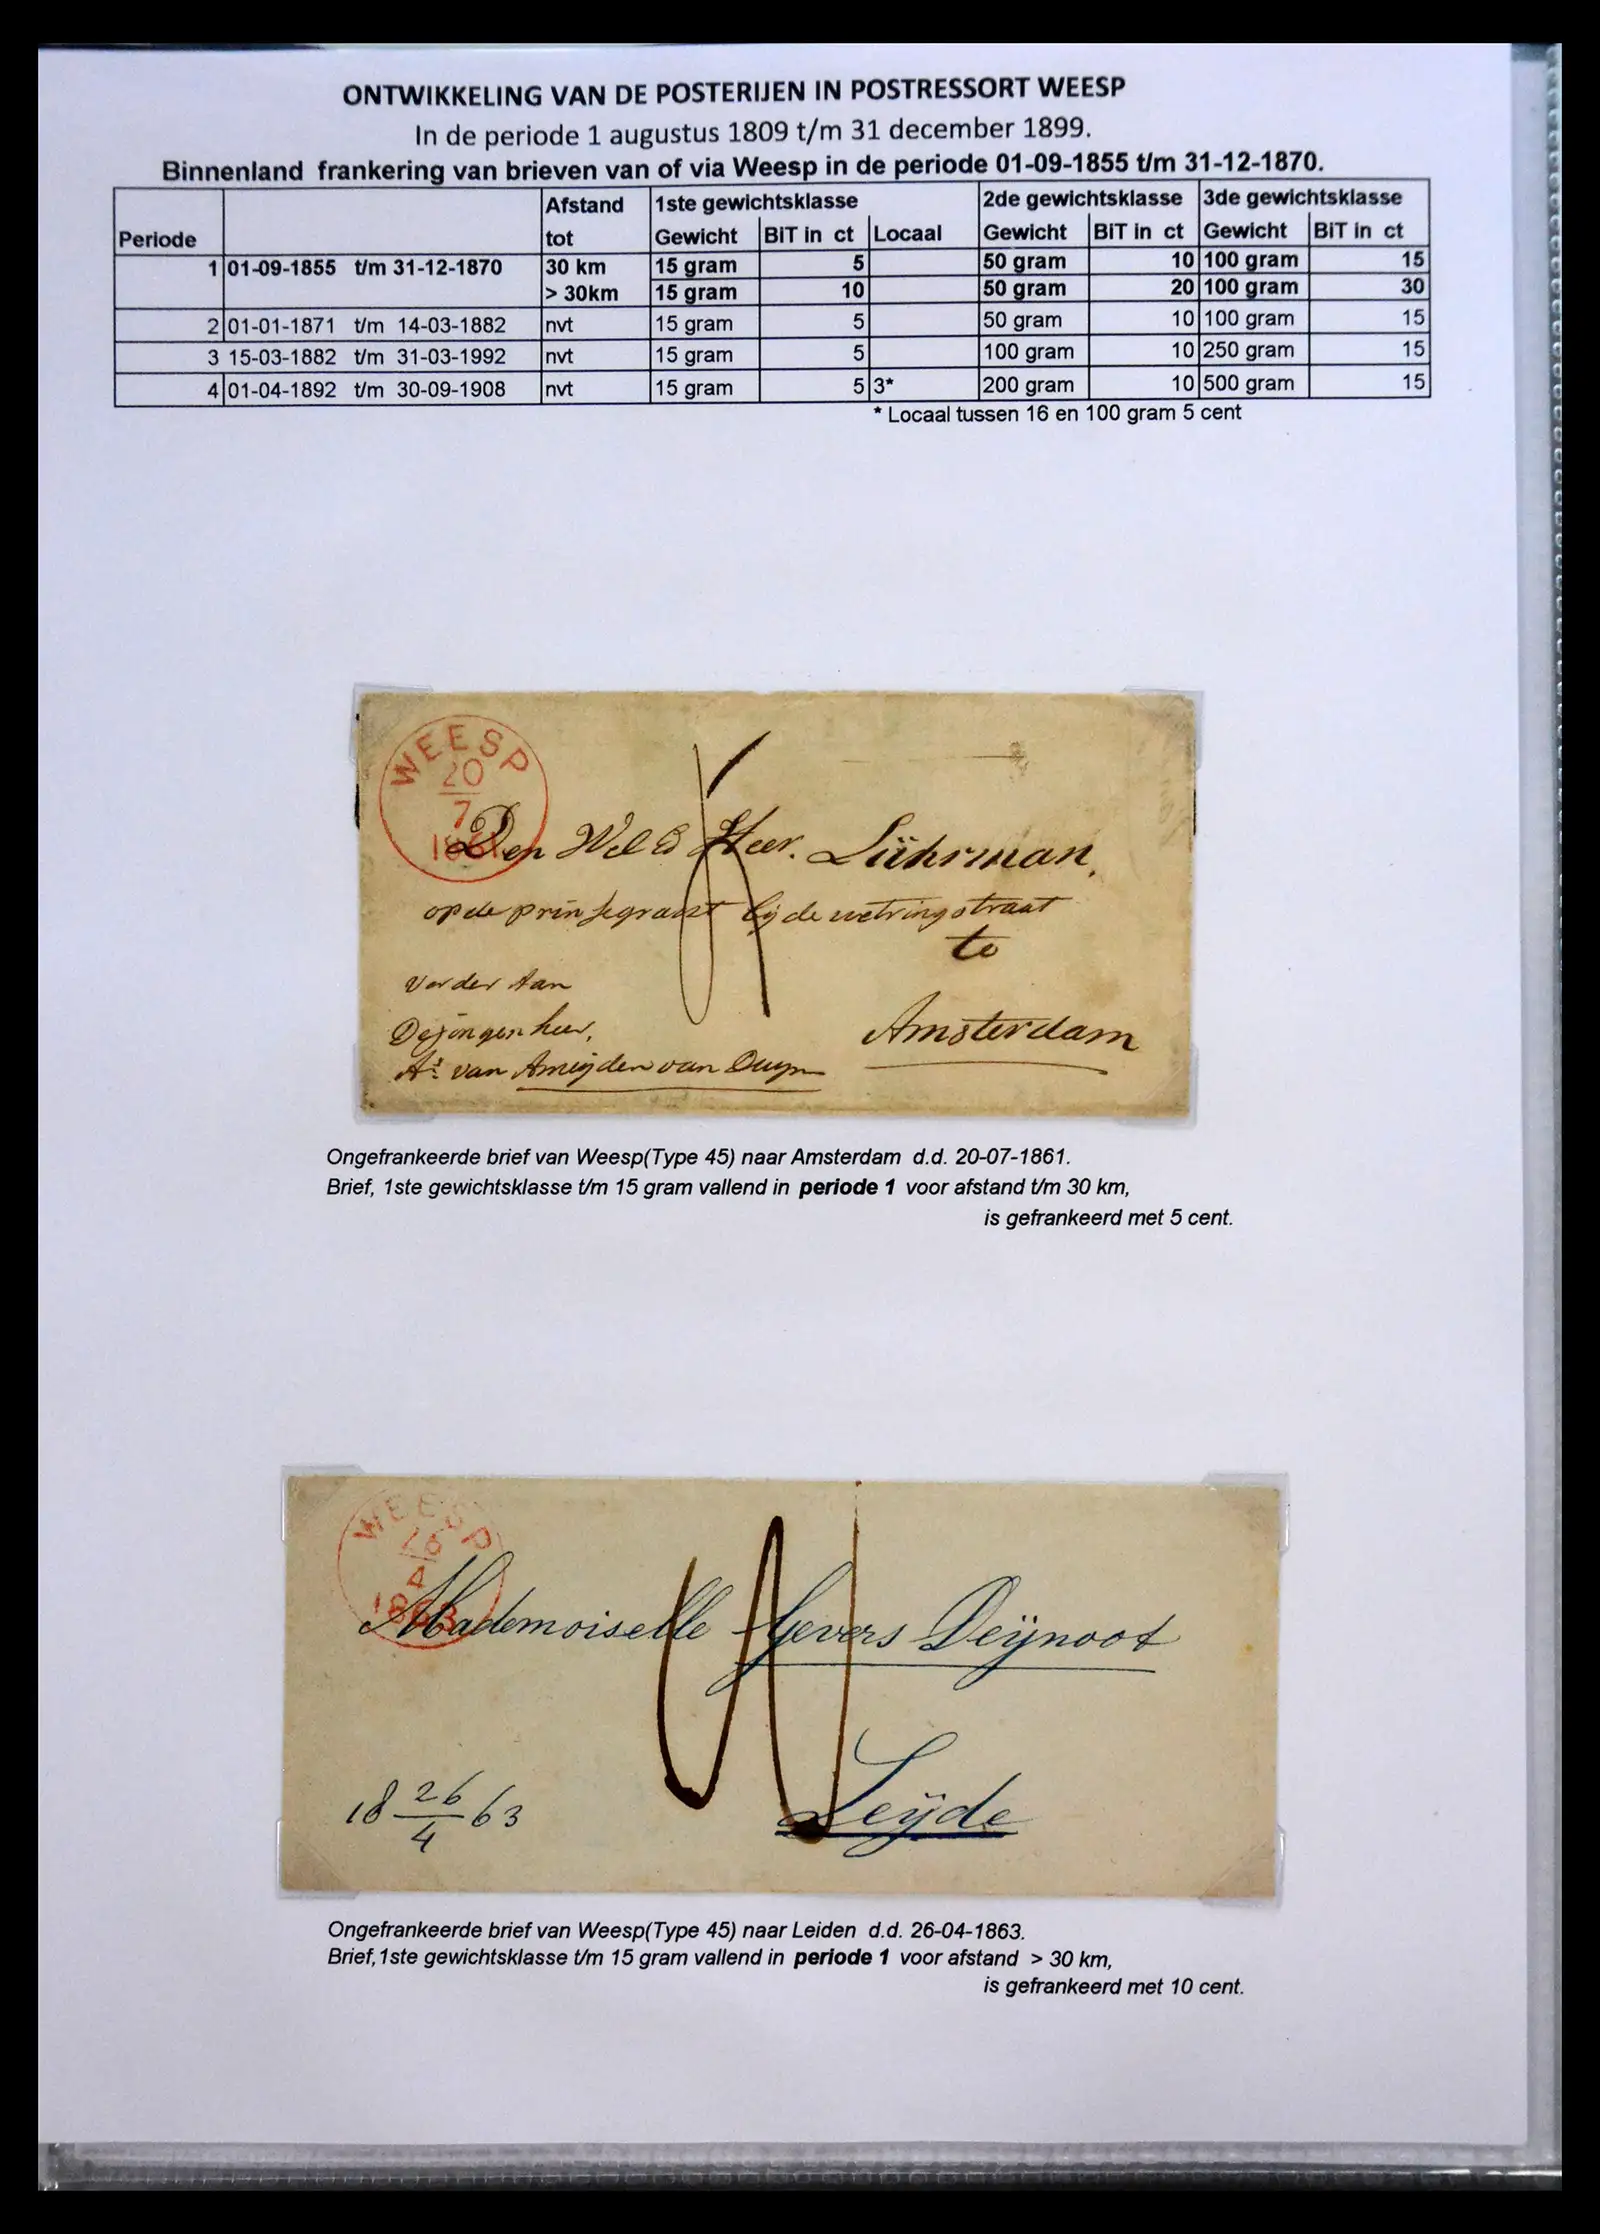 ONTWIKKELING VAN DE POSTERIJEN IN POSTRESSORT WEESP
In de periode 1 augustus 1809 t/m 31 december 1899.
Binnenland frankering van brieven van of via Weesp in de periode 01-09-1855 t/m 31-12-1870.
Afstand 1ste gewichtsklasse 2de gewichtsklasse 3de gewichtsklasse
Periode tot Gewicht BiT in ct Locaal Gewicht BiT in ct Gewicht BiT in ct
1 01-09-1855 t/m 31-12-1870 30 km 15 gram 5 50 gram 10 100 gram 15
> 30km 15 gram 10 50 gram 20 100 gram 30
2 01-01-1871 t/m 14-03-1882 nvt 15 gram 5 50 gram 10 100 gram 15
3 15-03-1882 t/m 31-03-1992 nvt 15 gram 5 100 gram 10 250 gram 15
4 01-04-1892 t/m 30-09-1908 nvt 15 gram 5 3* 200 gram 10 500 gram 15
* Locaal tussen 16 en 100 gram 5 cent
WEESP
20
7
1861
Den Wel Ed Heer. Lührman,
op de prinsegracht bij de wetringstraat
te
Amsterdam
verder Aan
De jongen heer,
As van Ameijden van Duym
Ongefrankeerde brief van Weesp(Type 45) naar Amsterdam d.d. 20-07-1861.
Brief, 1ste gewichtsklasse t/m 15 gram vallend in periode 1 voor afstand t/m 30 km,
is gefrankeerd met 5 cent.
WEESP
26
4
1863
Mademoiselle Gevers Deÿnoot
Leÿde
18 26/4 63
Ongefrankeerde brief van Weesp(Type 45) naar Leiden d.d. 26-04-1863.
Brief,1ste gewichtsklasse t/m 15 gram vallend in periode 1 voor afstand > 30 km,
is gefrankeerd met 10 cent.